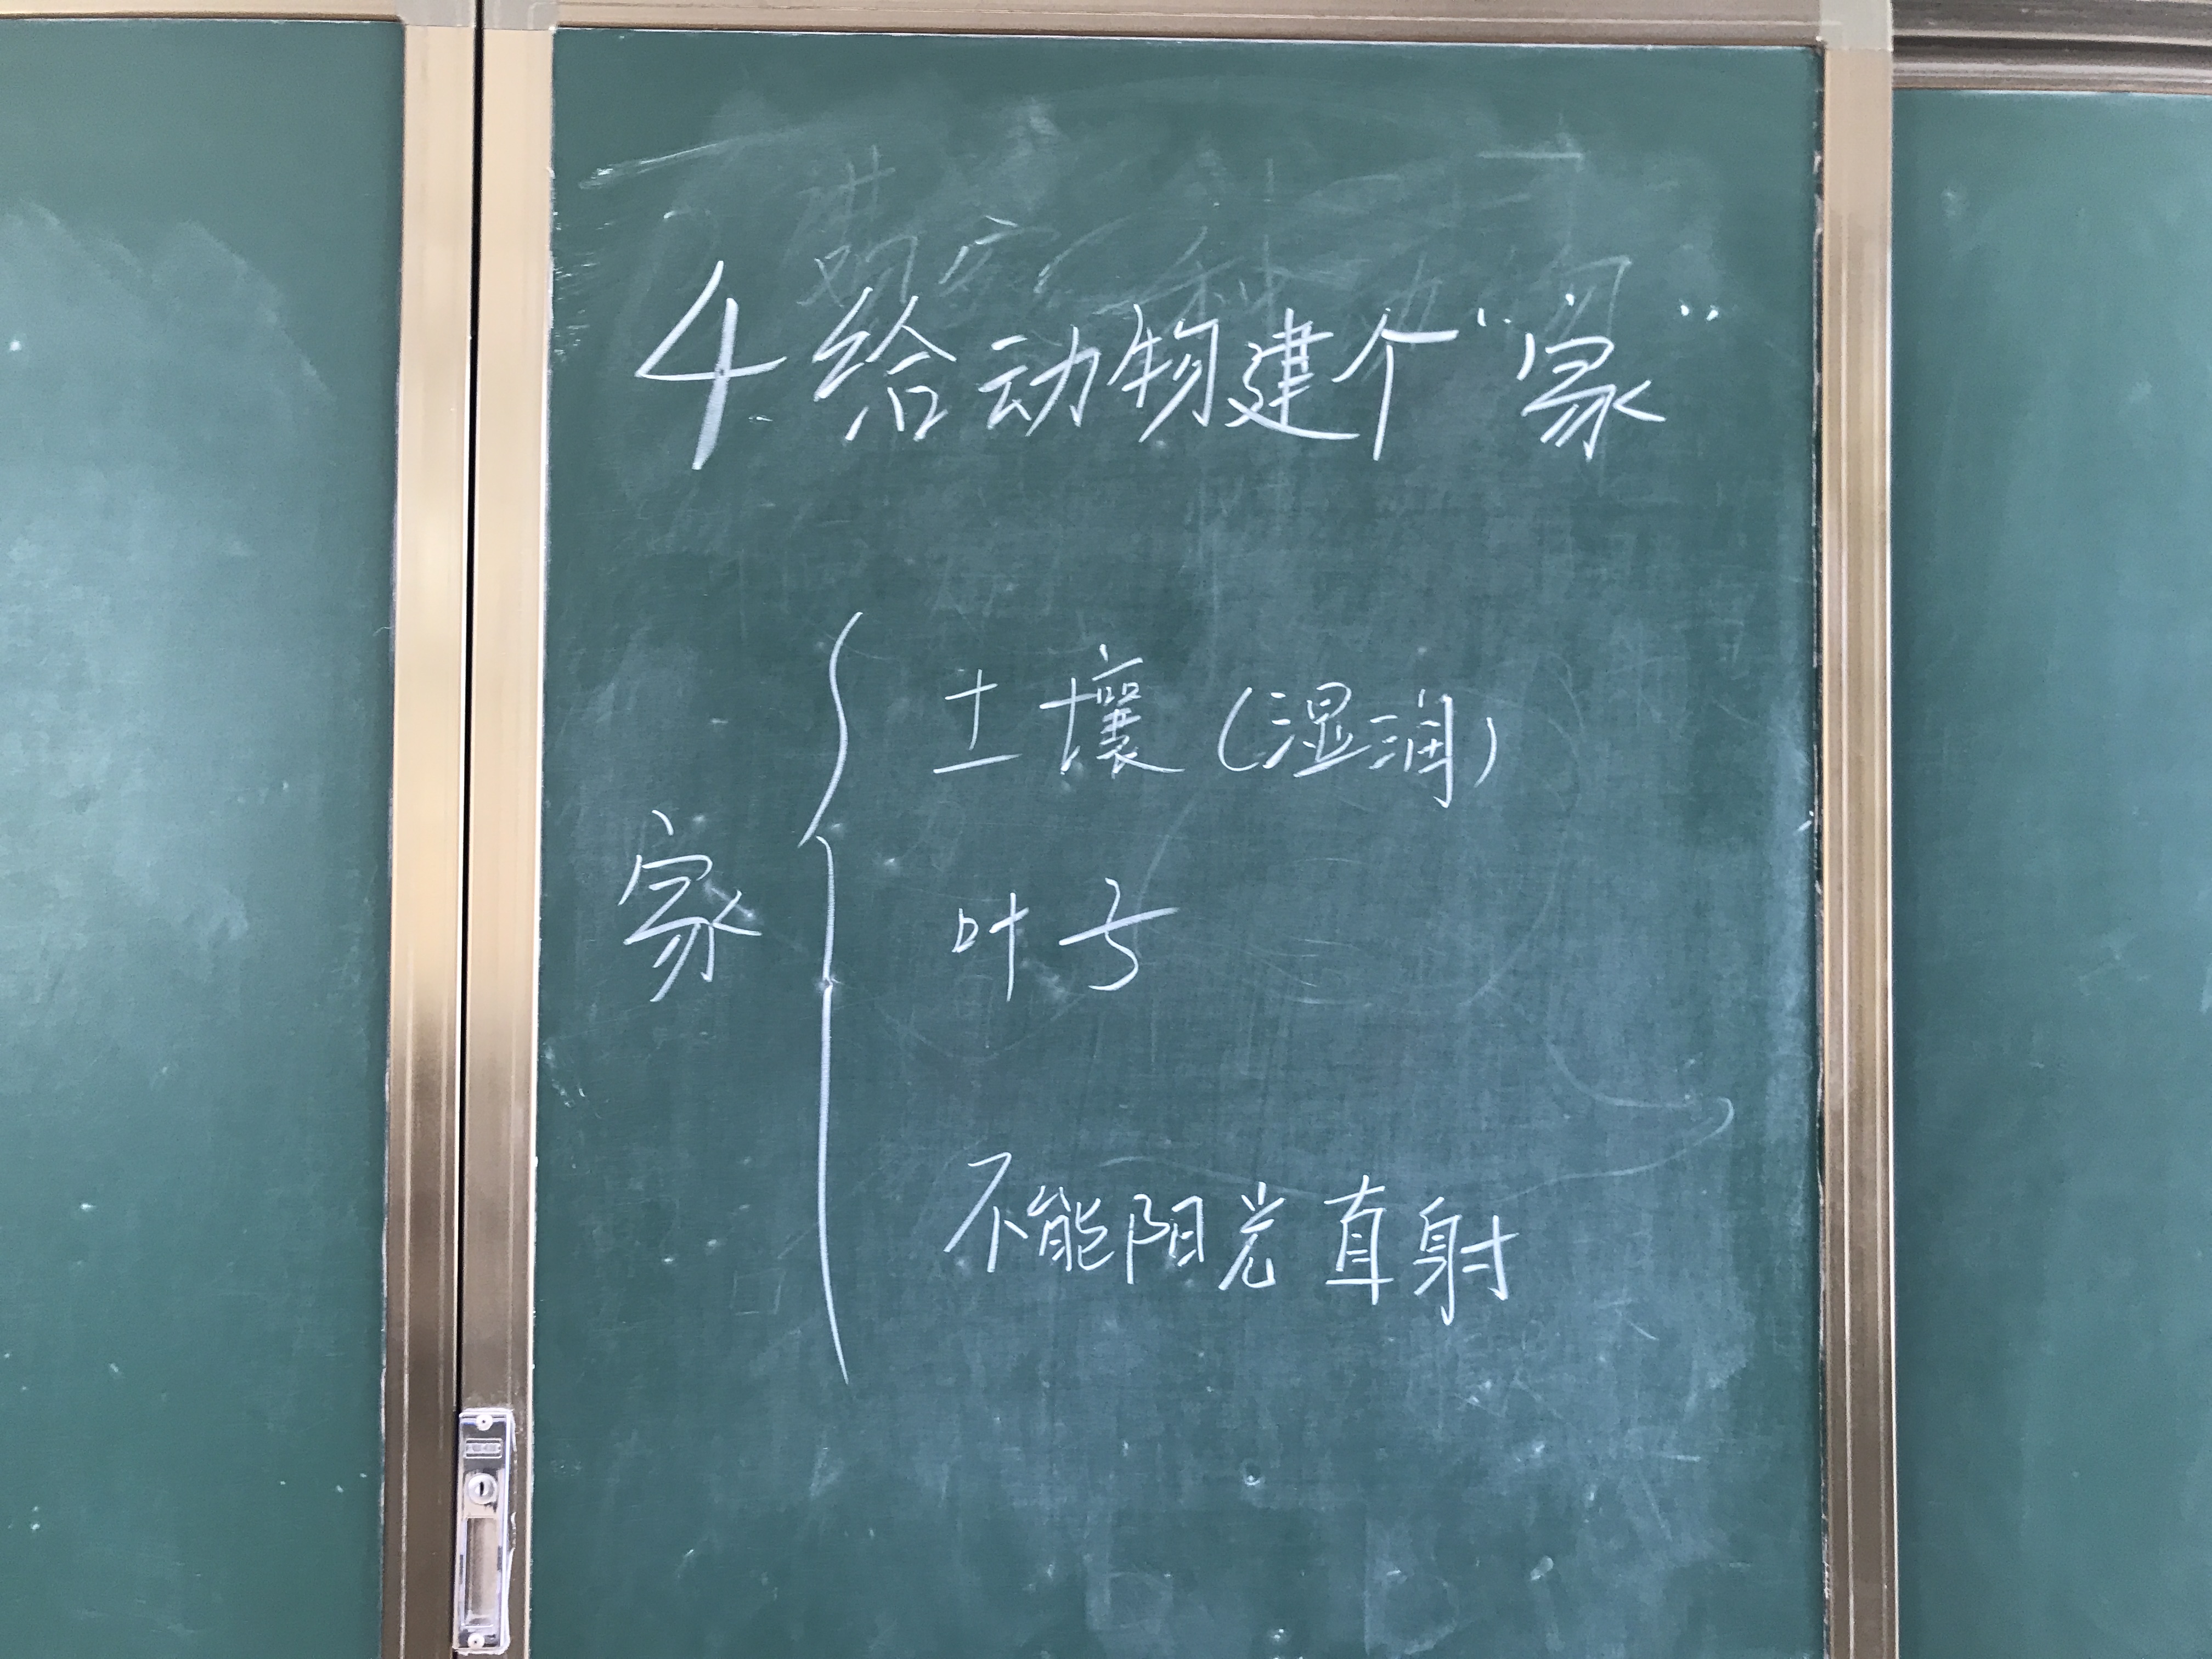 4 给动物建个“家”
土壤（湿润）
家
叶子
不能阳光直射